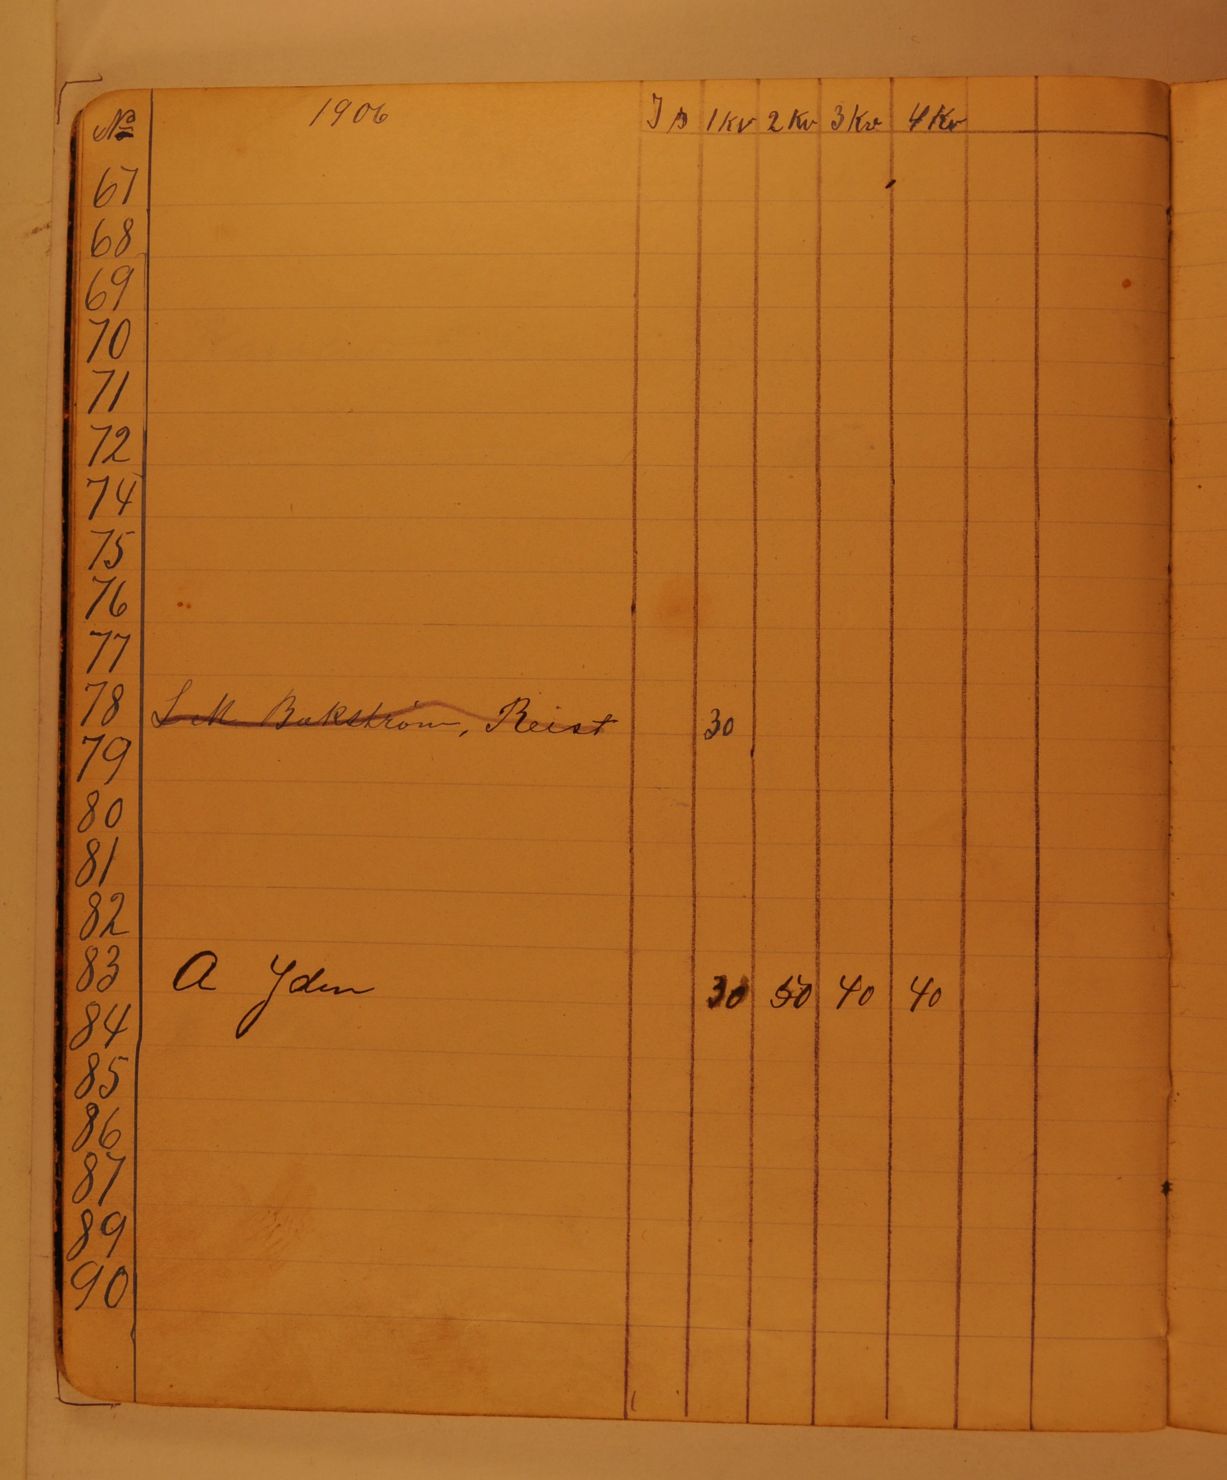 No 1906 I b 1 Kv 2 Kv 3 Kv 4 Kv
67
68
69
70
71
72
74
75
76
77
78 L M Bækström, Reist 30
79
80
81
82
83 A Yden 30 50 40 40
84
85
86
87
89
90